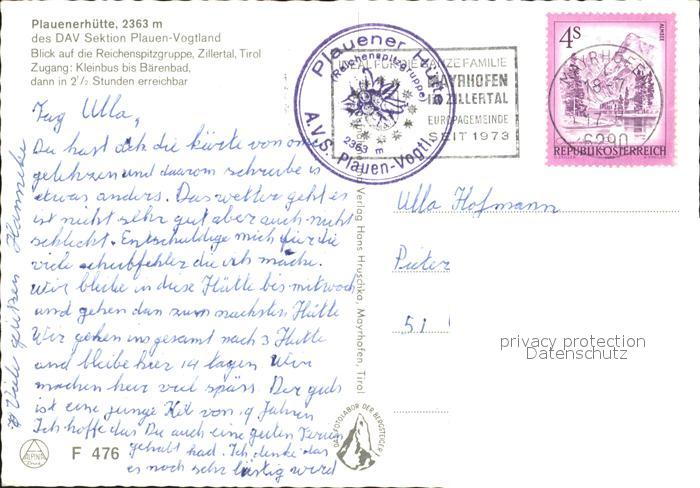 Plauenerhütte, 2363 m
des DAV Sektion Plauen-Vogtland
Blick auf die Reichenspitzgruppe, Zillertal, Tirol
Zugang: Kleinbus bis Bärenbad,
dann in 2½ Stunden erreichbar
Plauener Hütte
(Reichenspitzgruppe)
2363 m
A.V.S. Plauen-Vogtl.
FÜR DIE GANZE FAMILIE
MAYRHOFEN
IM ZILLERTAL
EUROPAGEMEINDE
SEIT 1973
MAYRHOFEN
6290
4S
ALMSEE
REPUBLIK ÖSTERREICH
Tag Ulla,
Du hast dich die karte von om
gelehzen und daarom schreibe is
etwas anders. Das wetter geht es
ist nicht sehr gut aber auch nicht
schlecht. Entschuldige mich für die
viele schribfehler die ich mache.
Wir bleibe in diese Hütte bis mitwoch
und gehen dan zum nachsten Hütte
Wir gehen insgesamt nach 3 Hütte
und bleibe hier 14 tagen Wir
machen hier viel späss. Der gids
ist eine junge Kel von 19 Jahren
Ich hoffe das Du auch eine guten Ferien
gehabt had. Ich denke das
es noch sehr lüstig wird
Viele grüssen Hanneke
Ulla Hofmann
Pieter
51
Verlag Hans Hruschka, Mayrhofen, Tirol
DAS FOTOLABOR DER BERGSTEIGER
ALPINA
F 476
privacy protection
Datenschutz